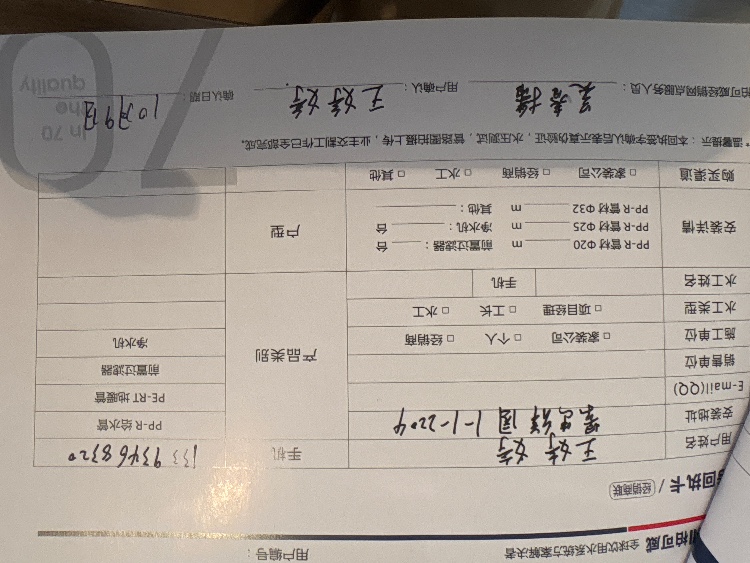 柏可威 全球饮用水系统方案解决者
用户编号：
回执卡 / 经销商联
用户姓名 王婷婷 手机 133 9346 8320
安装地址 1-1-2204
E-mail(QQ)
销售单位
施工单位 □ 家装公司 □ 个人 □ 经销商
水工类型 □ 项目经理 □ 工长 □ 水工
水工姓名 手机
产品类别
PP-R 给水管
PE-RT 地暖管
前置过滤器
净水机
安装详情
PP-R 管材 Φ20 m 前置过滤器： 台
PP-R 管材 Φ25 m 净水机： 台
PP-R 管材 Φ32 m 其他：
户型
购买渠道 □ 家装公司 □ 经销商 □ 水工 □ 其他
*温馨提示：本回执签字确认后表示真伪验证，水压测试，管路图拍摄上传，业主交割工作已全部完成。
柏可威经销网点服务人员： 用户确认： 王婷婷 确认日期： 10月9日
in 70
the
quality
70